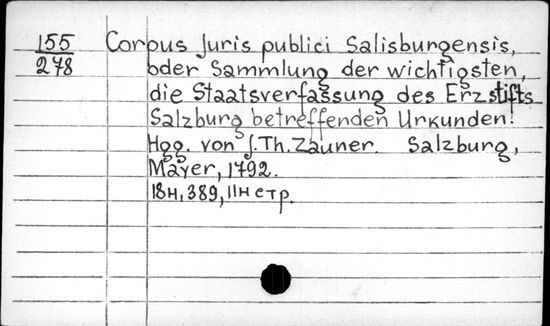 155 Corpus Juris publici Salisburgensis,
278 oder Sammlung der wichtigsten,
die Staatsverfassung des Erzstifts
Salzburg betreffenden Urkunden!
Hgg. von J.Th.Zauner. Salzburg,
Mayer, 1792.
18н, 389, 11н стр.